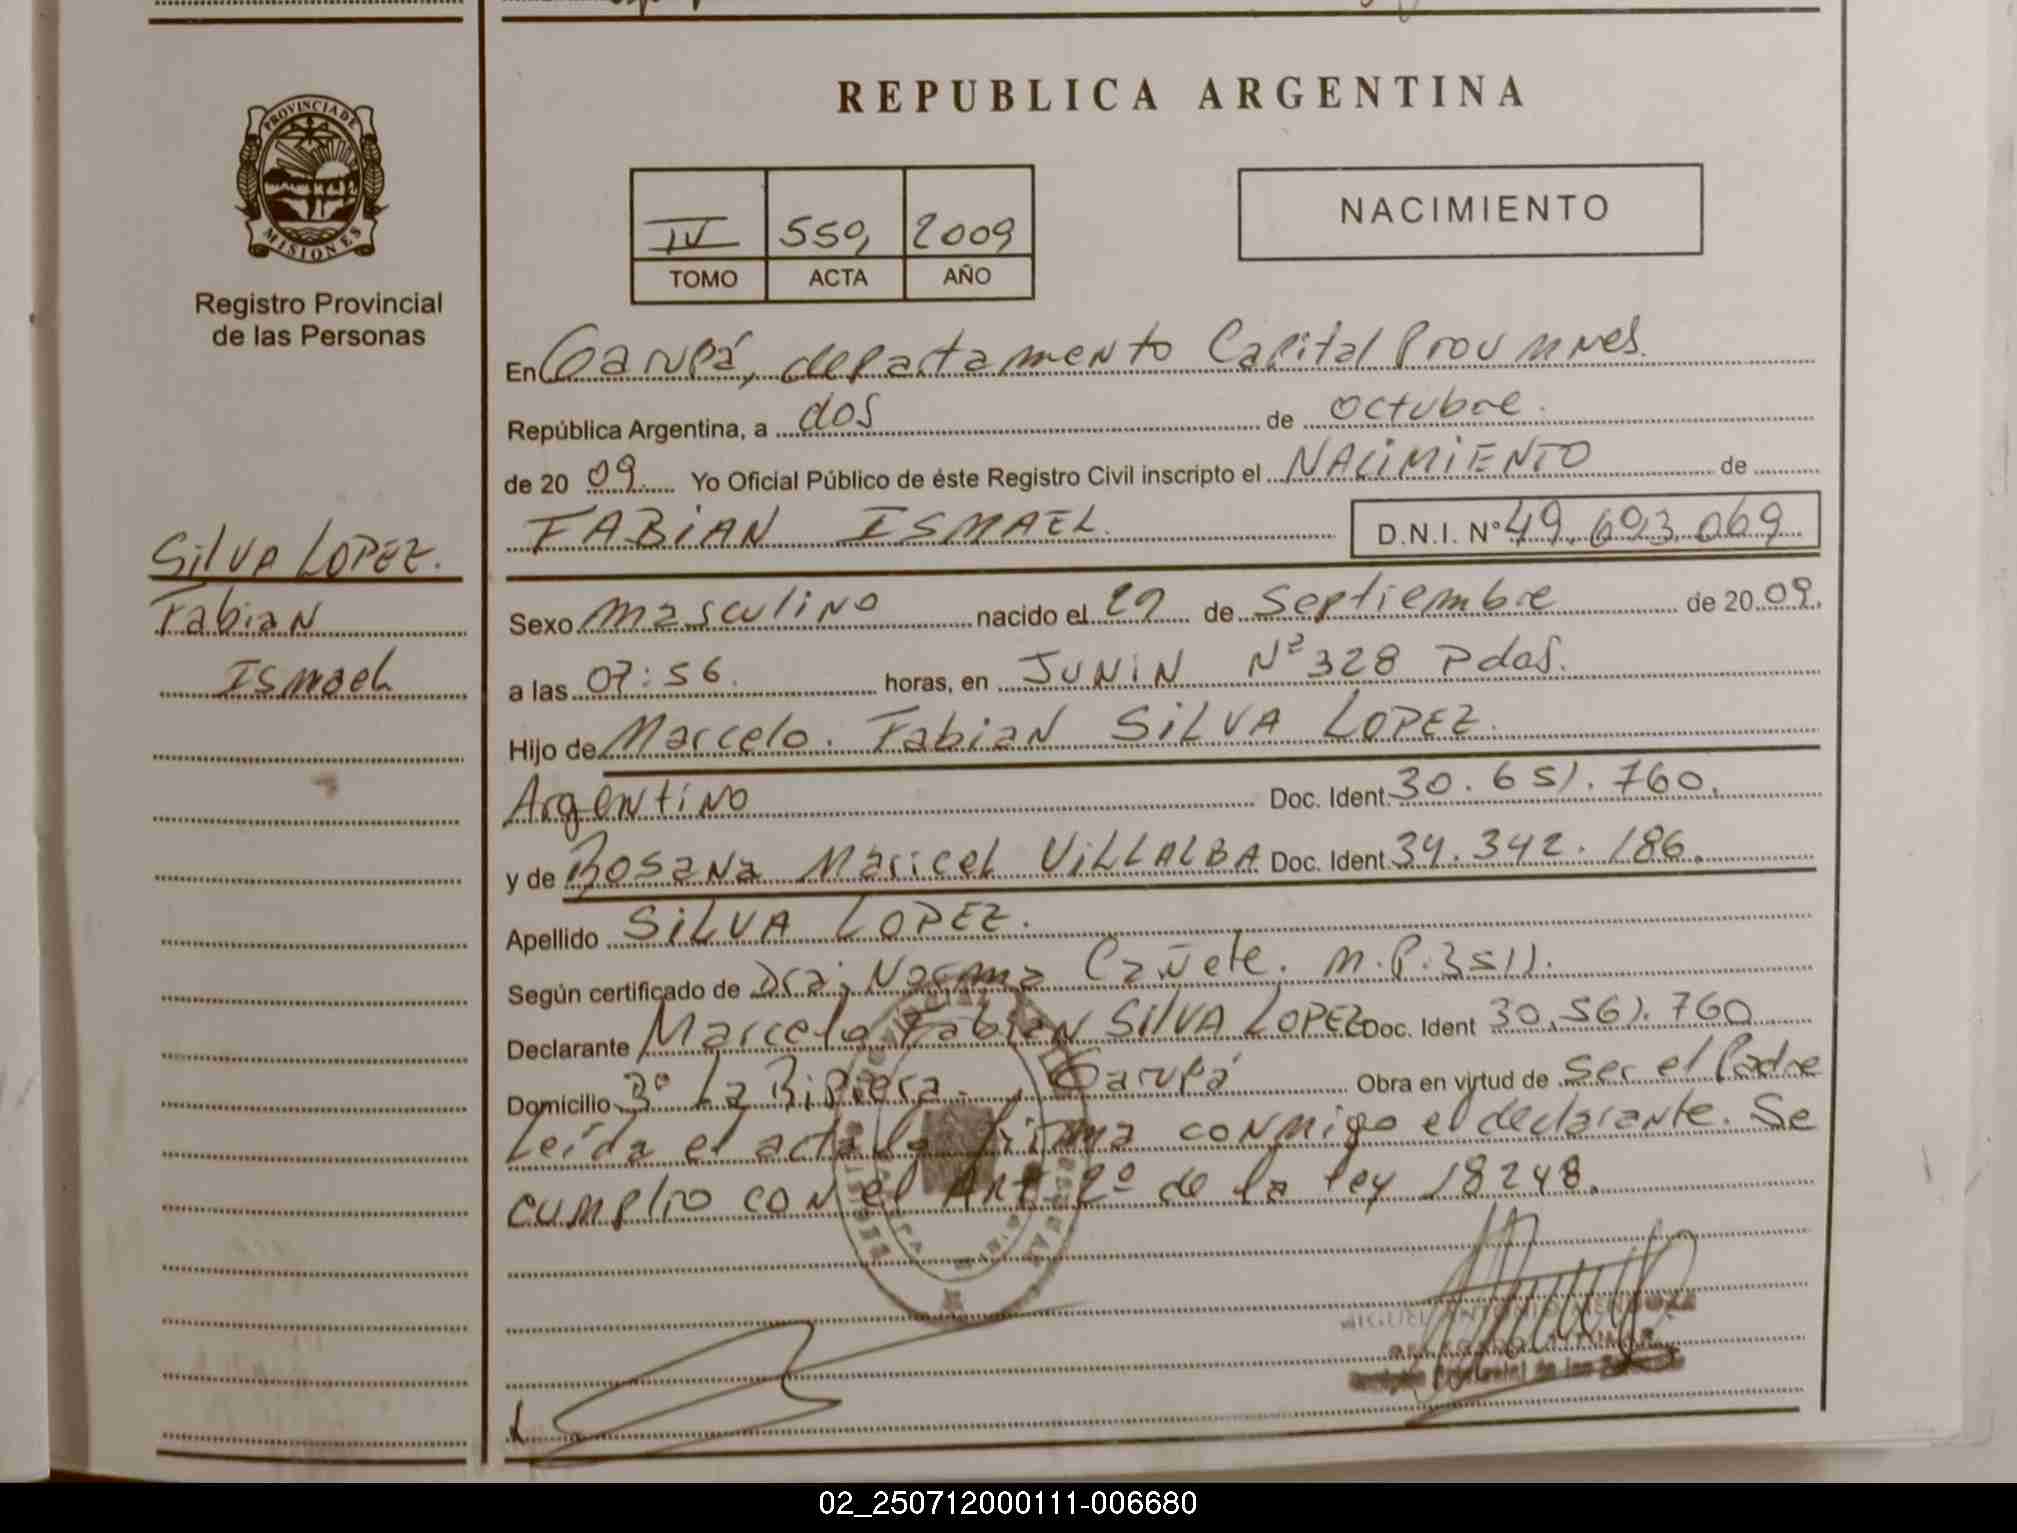 REPUBLICA ARGENTINA
PROVINCIA DE
MISIONES
Registro Provincial
de las Personas
IV 550, 2009
TOMO ACTA AÑO
NACIMIENTO
En Garupá, departamento Capital Prov Mnes.
República Argentina, a dos de octubre.
de 20 09. Yo Oficial Público de éste Registro Civil inscripto el NACIMIENTO de
FABIAN ISMAEL. D.N.I. Nº 49.693.069
SILVA LOPEZ.
Fabian
Ismael
Sexo masculino nacido el 29 de Septiembre de 20 09.
a las 07:56. horas, en JUNIN Nº 328 Pdas.
Hijo de Marcelo. Fabian SILVA LOPEZ.
Argentino Doc. Ident. 30.651.760.
y de Rosana Maricel VILLALBA Doc. Ident. 34.342.186.
Apellido SILVA LOPEZ.
Según certificado de Dra; Norma Cañete. M.P. 3511.
Declarante Marcelo Fabian SILVA LOPEZ Doc. Ident 30.561.760
Domicilio Bº La Ribiera., Garupá Obra en virtud de ser el Padre
Leída el acta la firma conmigo el declarante. Se
cumplio con el Art 2º de la ley 18248.
MIGUEL ANTONIO MENDOZA
02_250712000111-006680